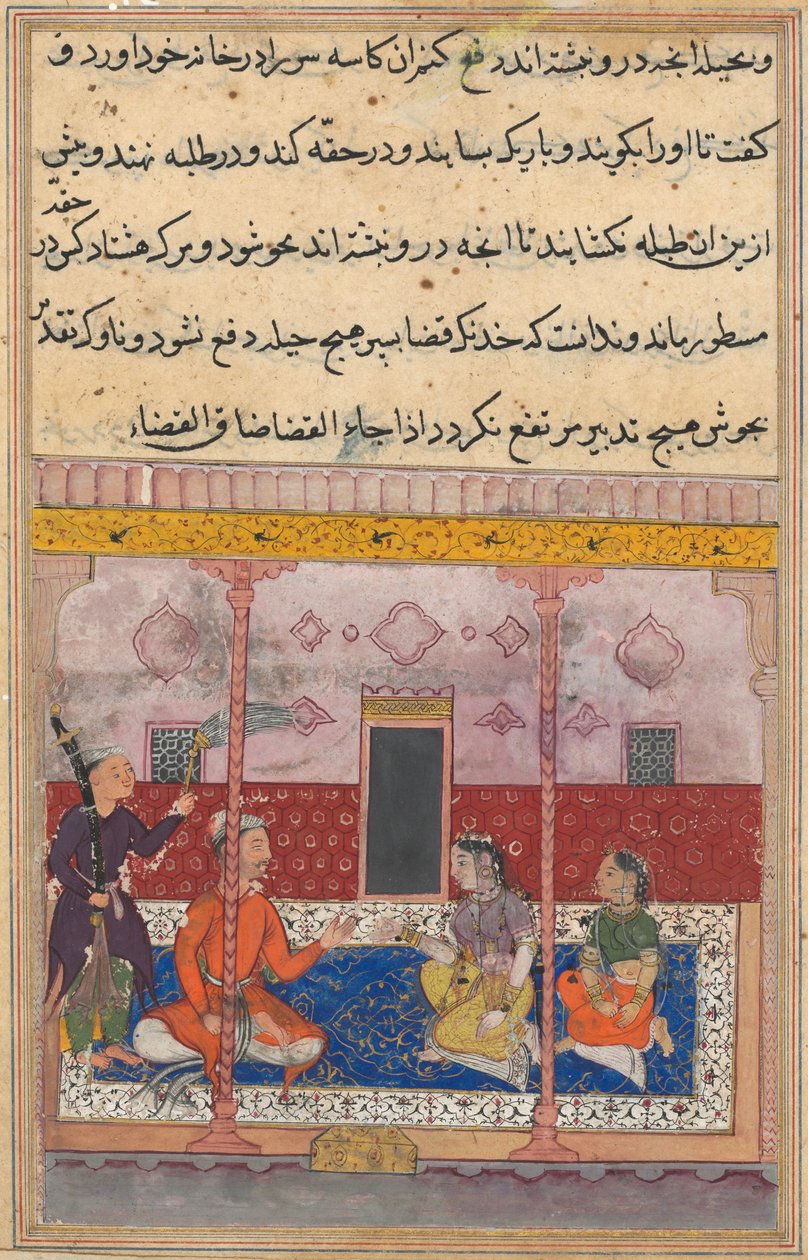 و بحیله انچه درو نبشته اند دفع کنم ان کاسه سر را در خانه خود اورد و
کفت تا او را بکوبند و باریک بسایند و در حقّه کنند و در طبله نهند و پیش
حقّه
ازین ان طبله نکشایند تا انچه درو نبشته اند محو شود و مرک هشتاد کس در
مسطور ماند و ندانست که خدنک قضا بسپر هیچ حیله دفع نشود و ناوک تقدیر
بجوش هیچ تدبیر مرتفع نکردد اذا جاء القضا ضاق الفضاء